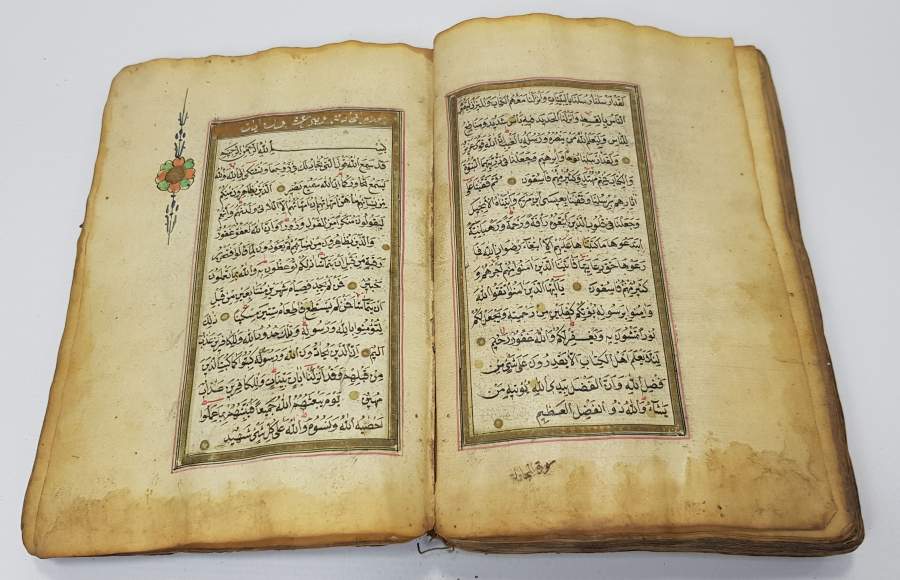 لقد ارسلنا رسلنا بالبينات وانزلنا معهم الكتاب والميزان ليقوم
الناس بالقسط وانزلنا الحديد فيه باس شديد ومنافع
للناس وليعلم الله من ينصره ورسله بالغيب ان الله قوي عزيز
ولقد ارسلنا نوحا وابرهيم وجعلنا في ذريتهما النبوة
والكتاب فمنهم مهتد وكثير منهم فاسقون ثم قفينا على
اثارهم برسلنا وقفينا بعيسى ابن مريم واتيناه الانجيل
وجعلنا في قلوب الذين اتبعوه رافة ورحمة ورهبانية
ابتدعوها ما كتبناها عليهم الا ابتغاء رضوان الله فما
رعوها حق رعايتها فاتينا الذين امنوا منهم اجرهم و
كثير منهم فاسقون يا ايها الذين امنوا اتقوا الله
وامنوا برسوله يؤتكم كفلين من رحمته ويجعل لكم
نورا تمشون به ويغفر لكم والله غفور رحيم
لئلا يعلم اهل الكتاب الا يقدرون على شيء من
فضل الله وان الفضل بيد الله يؤتيه من
يشاء والله ذو الفضل العظيم
سورة المجادلة
بسم الله الرحمن الرحيم
قد سمع الله قول التي تجادلك في زوجها وتشتكي الى الله والله
يسمع تحاوركما ان الله سميع بصير الذين يظاهرون منكم
من نسائهم ما هن امهاتهم ان امهاتهم الا اللائي ولدنهم وانهم
ليقولون منكرا من القول وزورا وان الله لعفو غفور
والذين يظاهرون من نسائهم ثم يعودون لما قالوا فتحرير
رقبة من قبل ان يتماسا ذلكم توعظون به والله بما تعملون
خبير فمن لم يجد فصيام شهرين متتابعين من قبل
ان يتماسا فمن لم يستطع فاطعام ستين مسكينا ذلك
لتؤمنوا بالله ورسوله وتلك حدود الله وللكافرين عذاب
اليم ان الذين يحادون الله ورسوله كبتوا كما كبت الذين
من قبلهم وقد انزلنا ايات بينات وللكافرين عذاب
مهين يوم يبعثهم الله جميعا فينبئهم بما عملوا
احصيه الله ونسوه والله على كل شيء شهيد